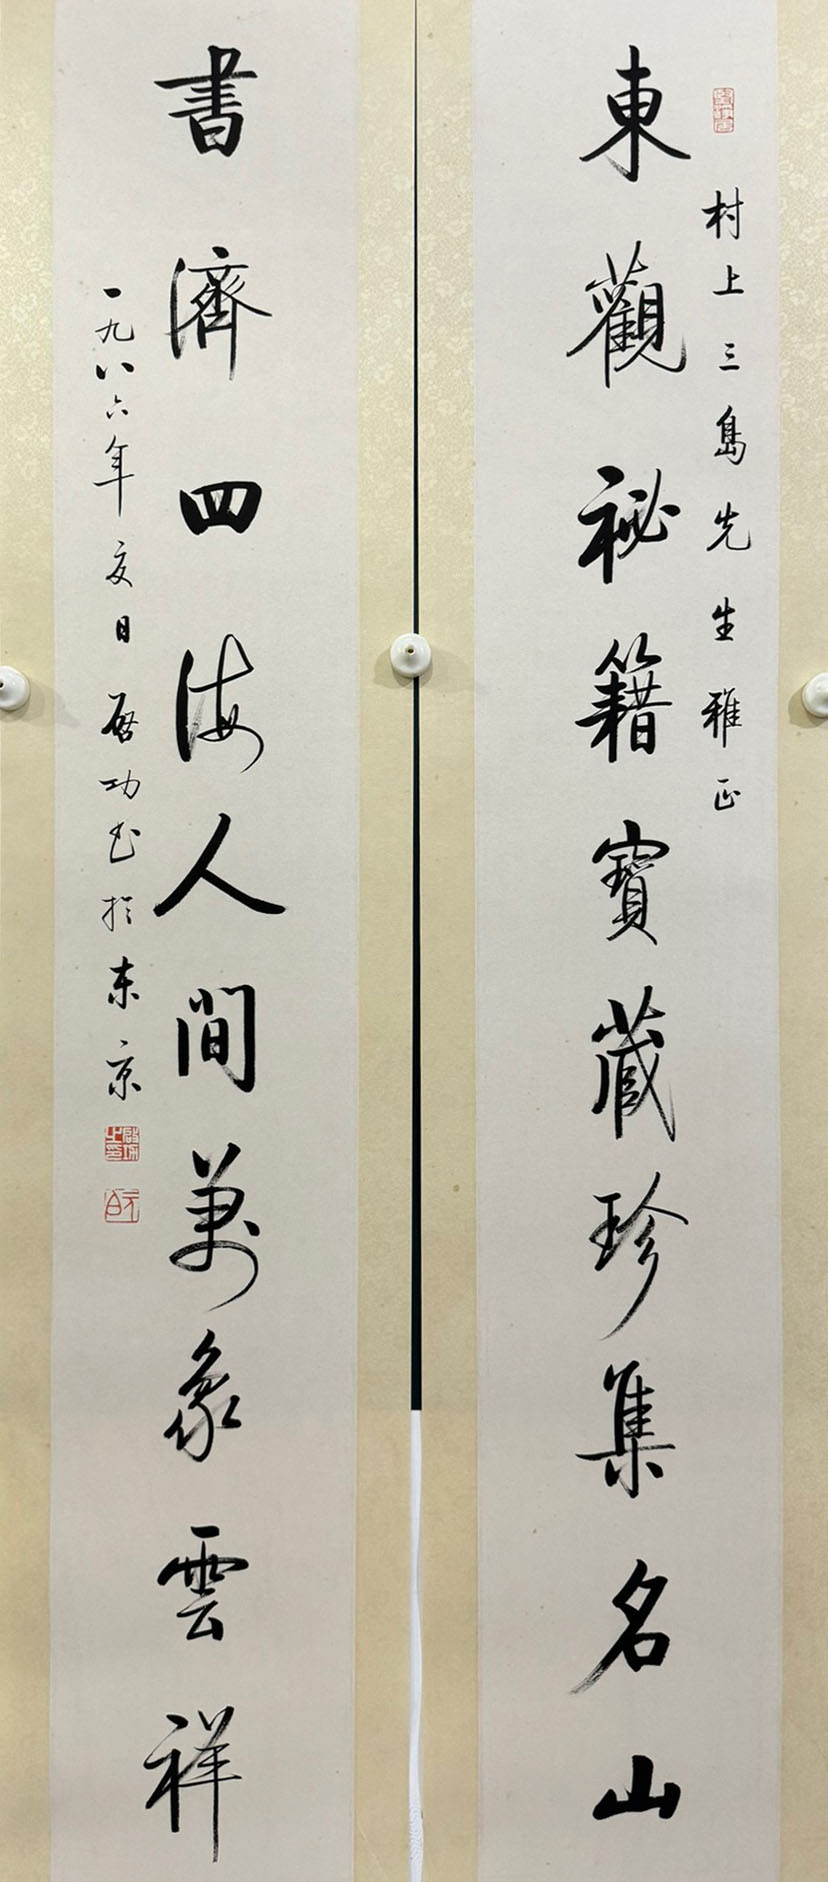 村上三島先生雅正
東觀祕籍寶藏珍集名山
書濟四海人間萬象雲祥
一九八六年夏日啓功书於东京
啟功之印
元白